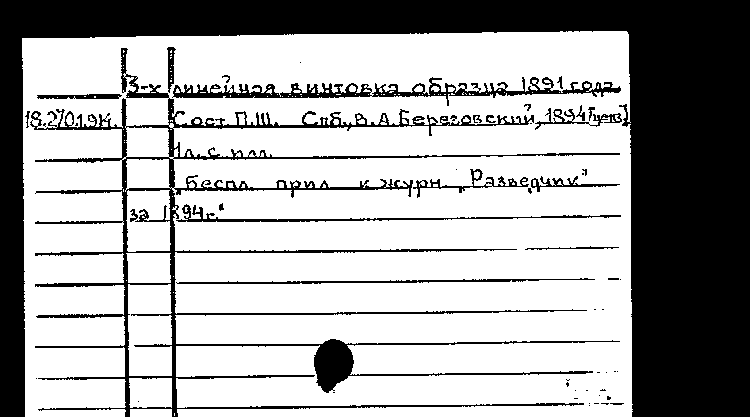 3-х линейная винтовка образца 1891 года.
18.270.1.914. Сост. П.Ш. Спб., В.А. Березовский, 1894 [ценз]
1 л. с илл.
"беспл. прил. к журн. "Разведчик"
за 1894 г."